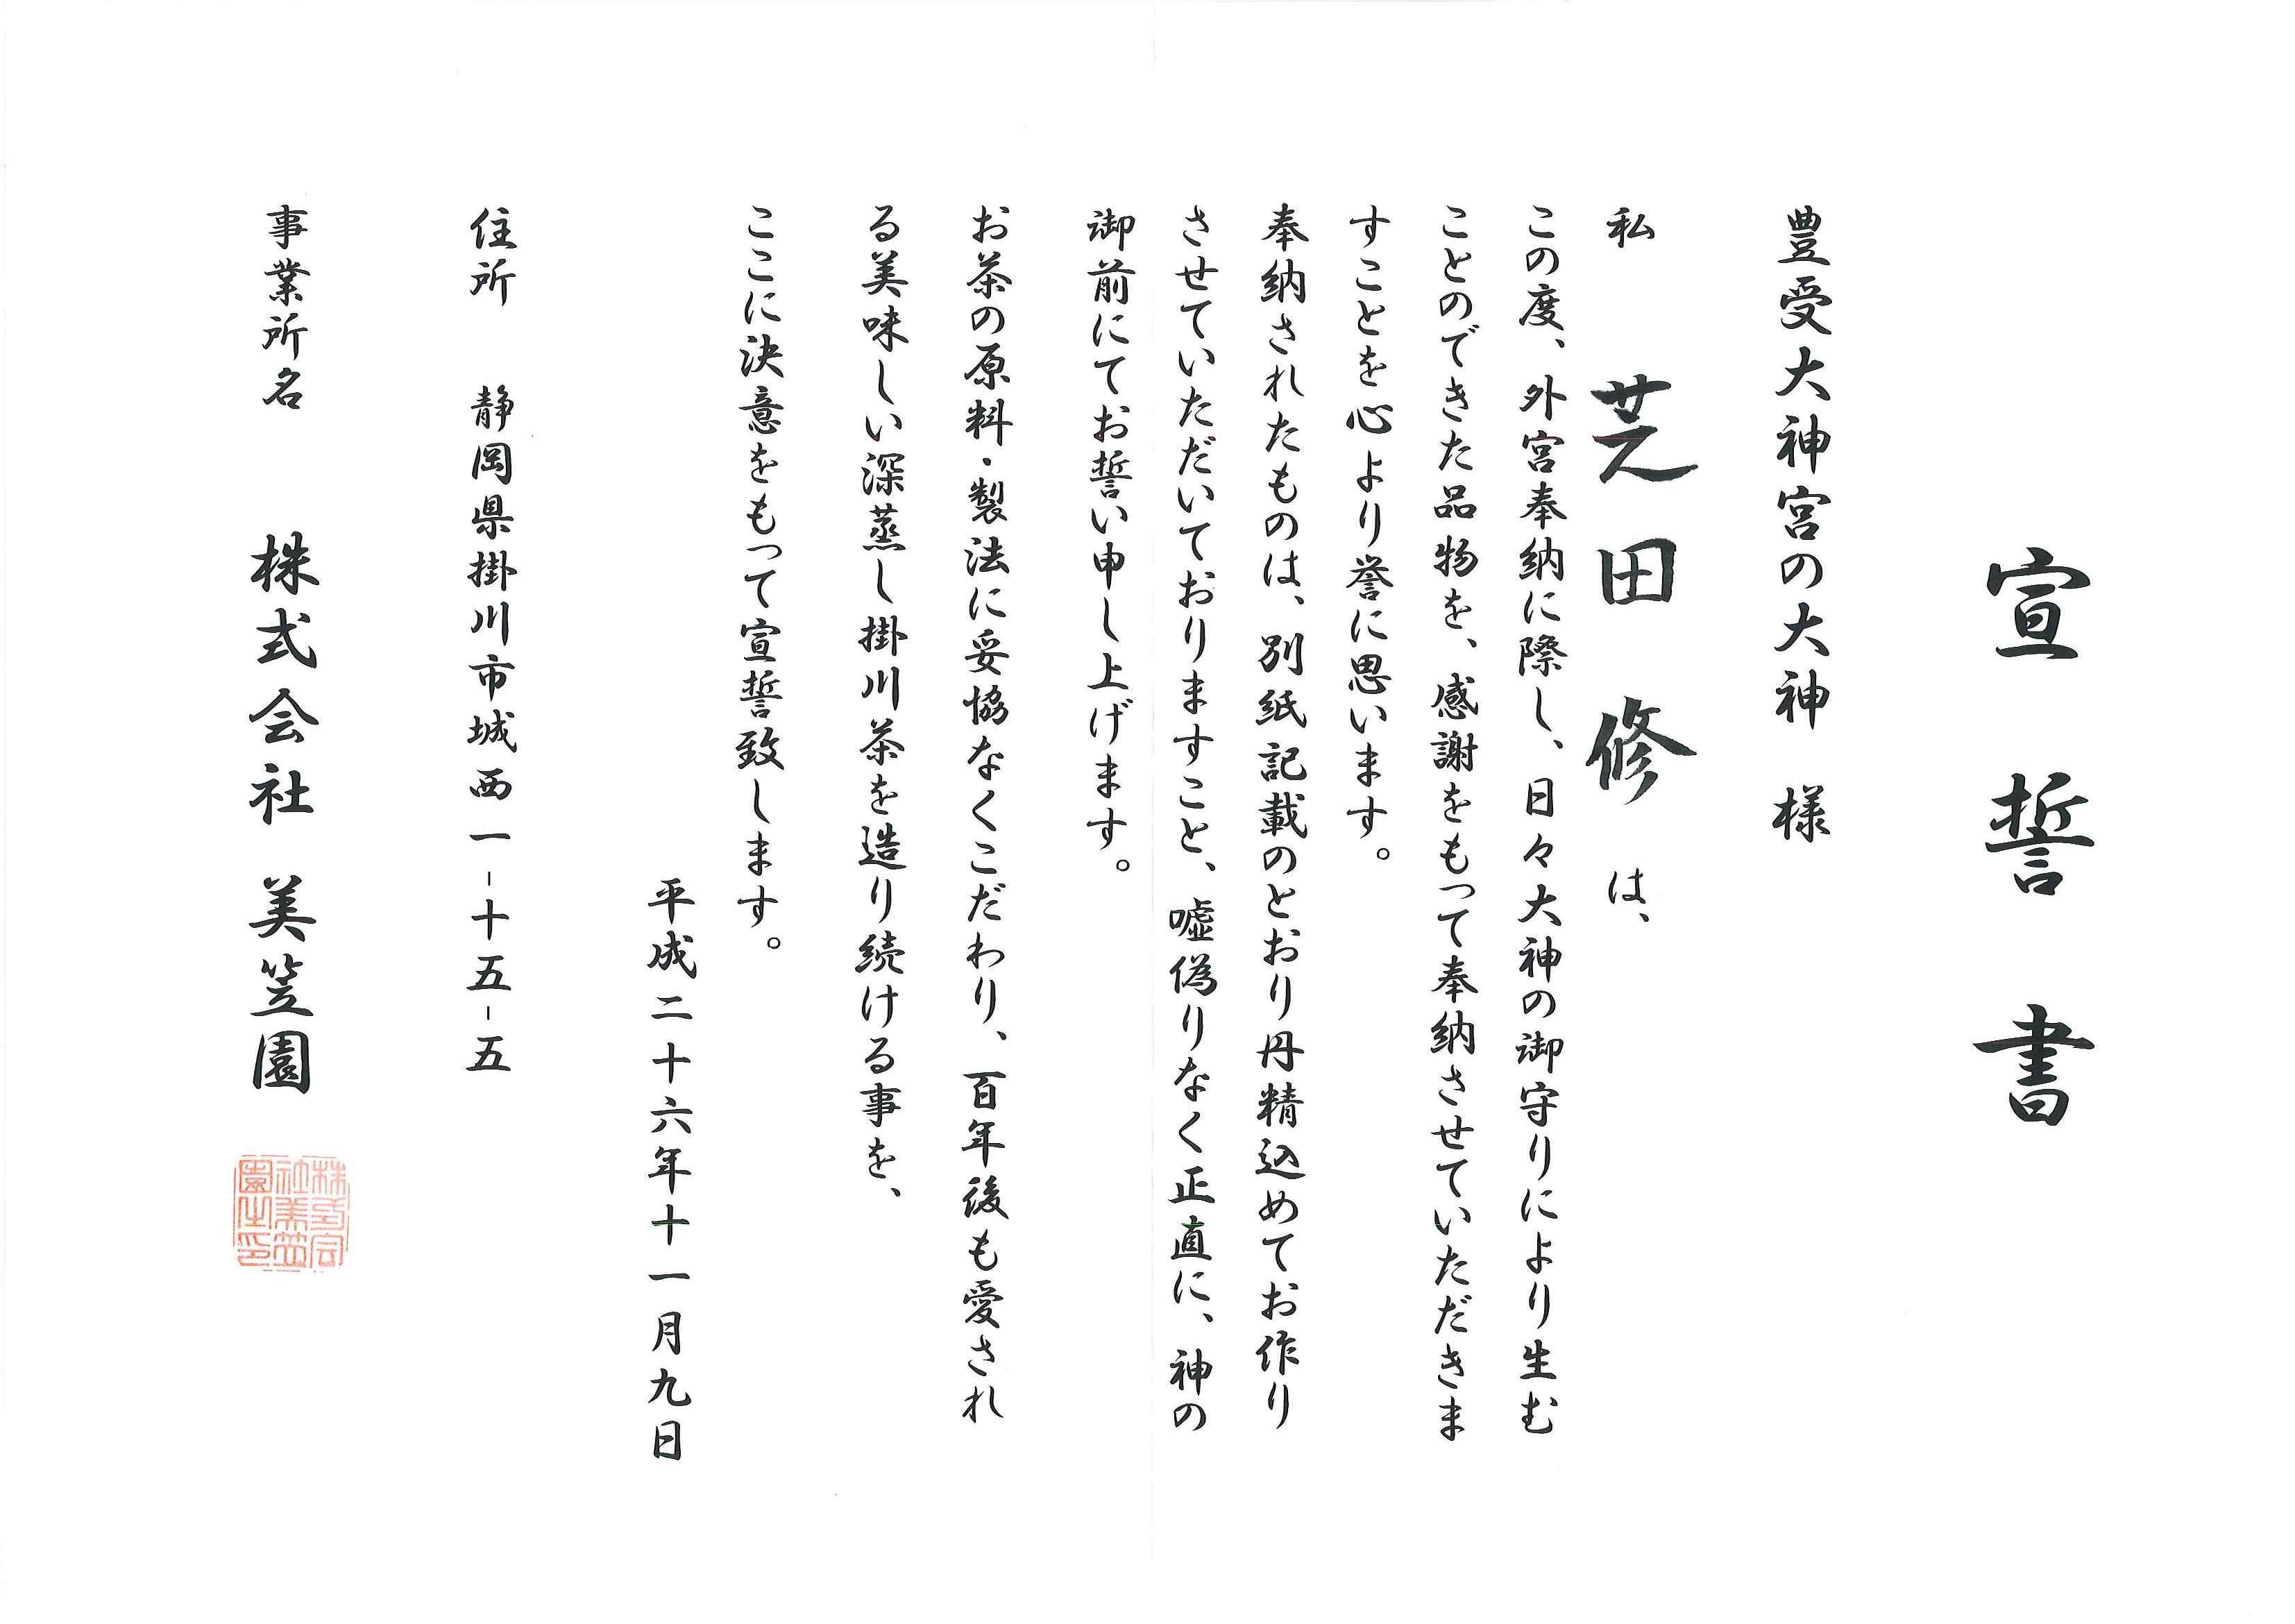 宣誓書
豊受大神宮の大神 様
私 芝田 修 は、
この度、外宮奉納に際し、日々大神の御守りにより生む
ことのできた品物を、感謝をもって奉納させていただきま
すことを心より誉に思います。
奉納されたものは、別紙記載のとおり丹精込めてお作り
させていただいておりますこと、嘘偽りなく正直に、神の
御前にてお誓い申し上げます。
お茶の原料・製法に妥協なくこだわり、百年後も愛され
る美味しい深蒸し掛川茶を造り続ける事を、
ここに決意をもって宣誓致します。
平成二十六年十一月九日
住所 静岡県掛川市城西一-十五-五
事業所名 株式会社 美笠園
株式会
社美笠
園之印